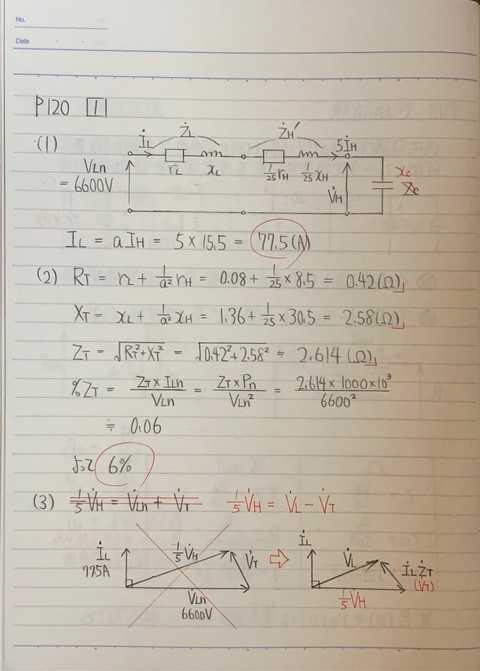 No.
Date
P120 1
(1)
İL ŻL ŻH′ 5İH
VLn = 6600V
rL xL 1/25 rH 1/25 xH V̇H xc Xc
IL = aIH = 5 × 15.5 = 77.5(A)
(2) RT = rL + 1/a² rH = 0.08 + 1/25 × 8.5 = 0.42(Ω)
XT = xL + 1/a² xH = 1.36 + 1/25 × 30.5 = 2.58(Ω)
ZT = √RT²+XT² = √0.42²+2.58² ≒ 2.614 (Ω)
%ZT = ZT × ILn / VLn = ZT × Pn / VLn² = 2.614 × 1000 × 10³ / 6600²
≒ 0.06
よって 6%
(3) 1/5 V̇H = V̇Ln + V̇T 1/5 V̇H = V̇L − V̇T
İL 77.5A 1/5 V̇H V̇T ⇨ İL V̇L İLŻT (V̇T)
V̇Ln 6600V 1/5 V̇H